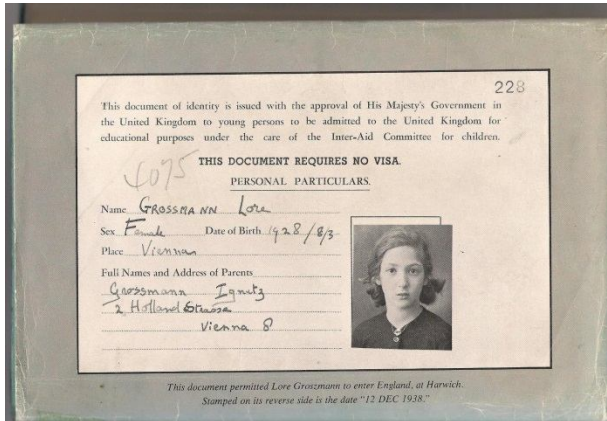 228
This document of identity is issued with the approval of His Majesty's Government in
the United Kingdom to young persons to be admitted to the United Kingdom for
educational purposes under the care of the Inter-Aid Committee for children.
THIS DOCUMENT REQUIRES NO VISA.
4075
PERSONAL PARTICULARS.
Name GROSSMANN Lore
Sex Female Date of Birth 1928/8/3
Place Vienna
Full Names and Address of Parents
Grossmann Ignatz
2 Holland Strasse
Vienna 8
This document permitted Lore Groszmann to enter England, at Harwich.
Stamped on its reverse side is the date "12 DEC 1938."